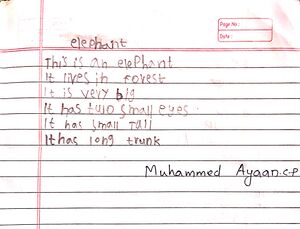 Page No :
Date :
elephant
This is an elephant
It lives in forest
It is very big
It has two small eyes
It has small Tail
It has long trunk
Muhammed Ayaan.c.p